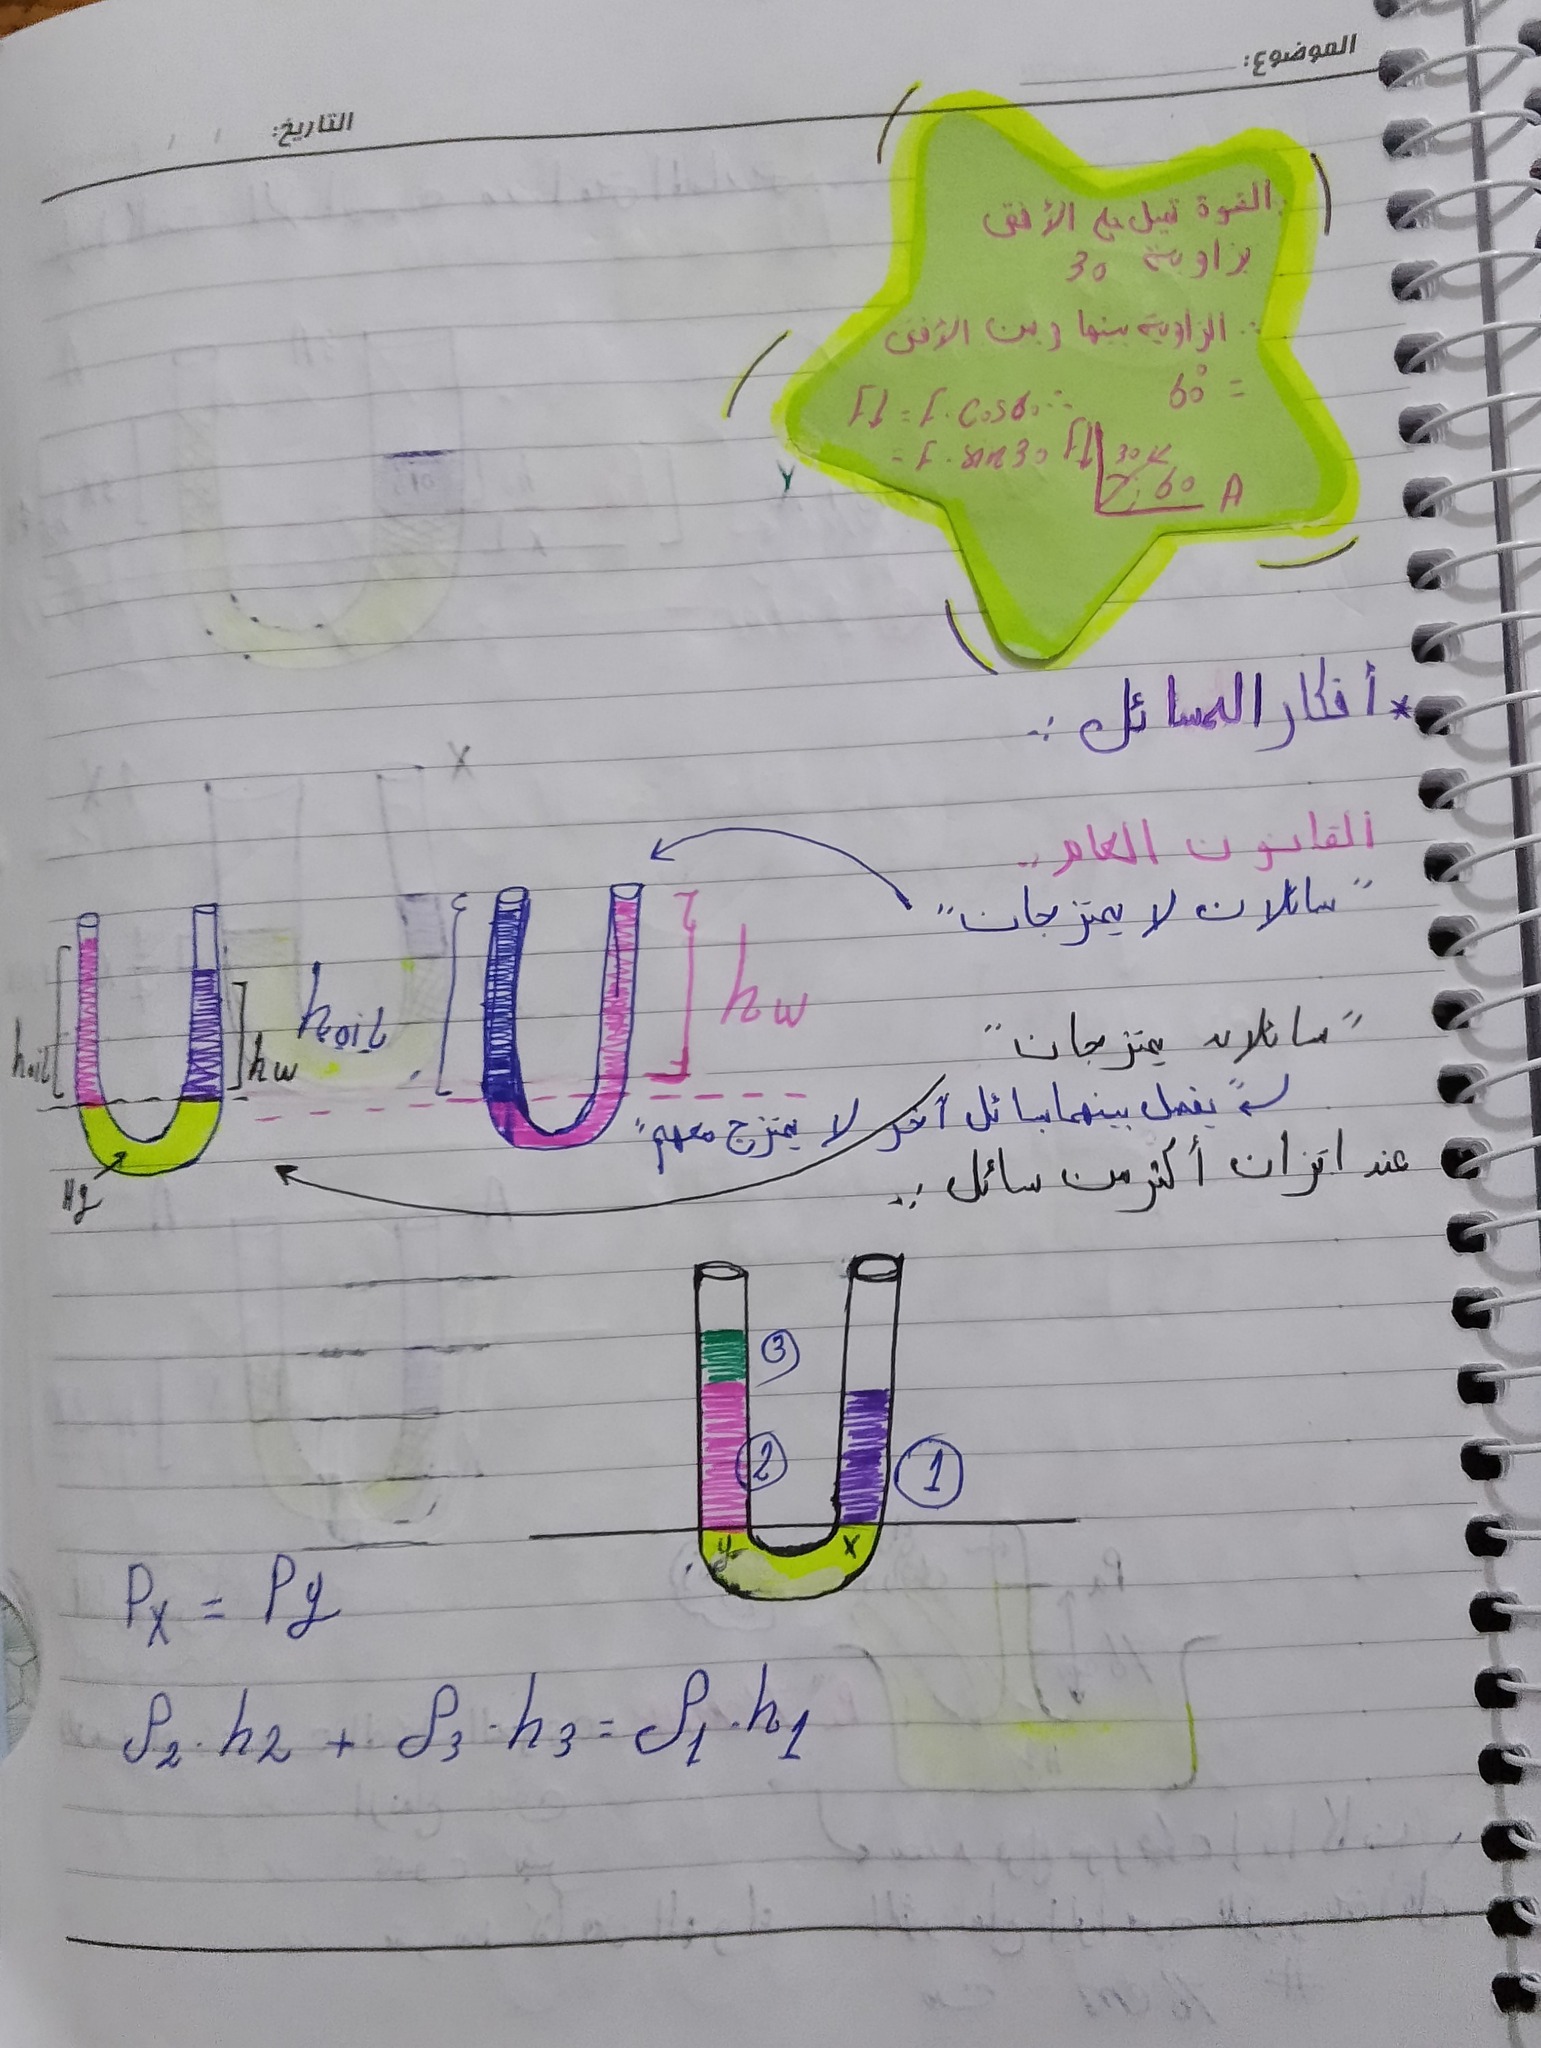 الموضوع:
التاريخ:
القوة تميل على الأفقى
بزاوية 30
∴ الزاوية بينها وبين الأفقى
= 60°
∴ F⊥ = F. cos60
= F. sin30
F⊥
30
60 A
Y
* أفكار المسائل :-
القانون العام ..
"سائلان لا يمتزجان"
hw
hoil
hoil
hw
Hg
"سائلان يمتزجان"
"يفصل بينهما سائل آخر لا يمتزج معهم"
عند اتزان أكثر من سائل :-
3
2
1
y
x
Px = Py
ρ2 . h2 + ρ3 . h3 = ρ1 . h1